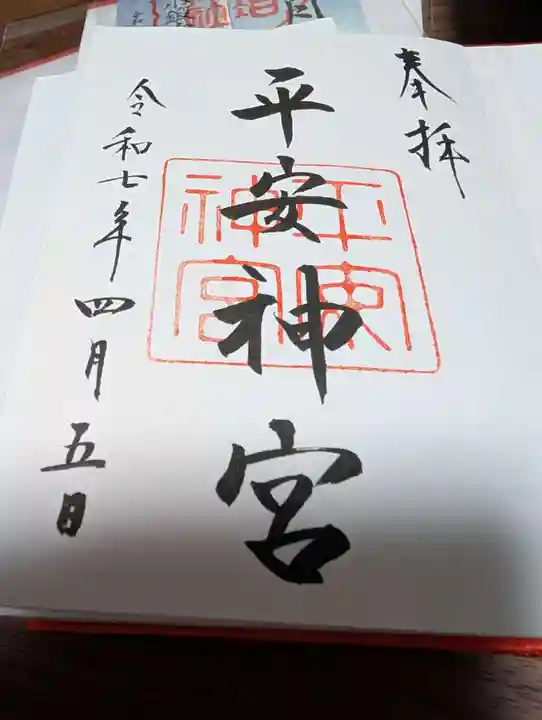 奉拝
平安神宮
平安神宮
令和七年四月五日